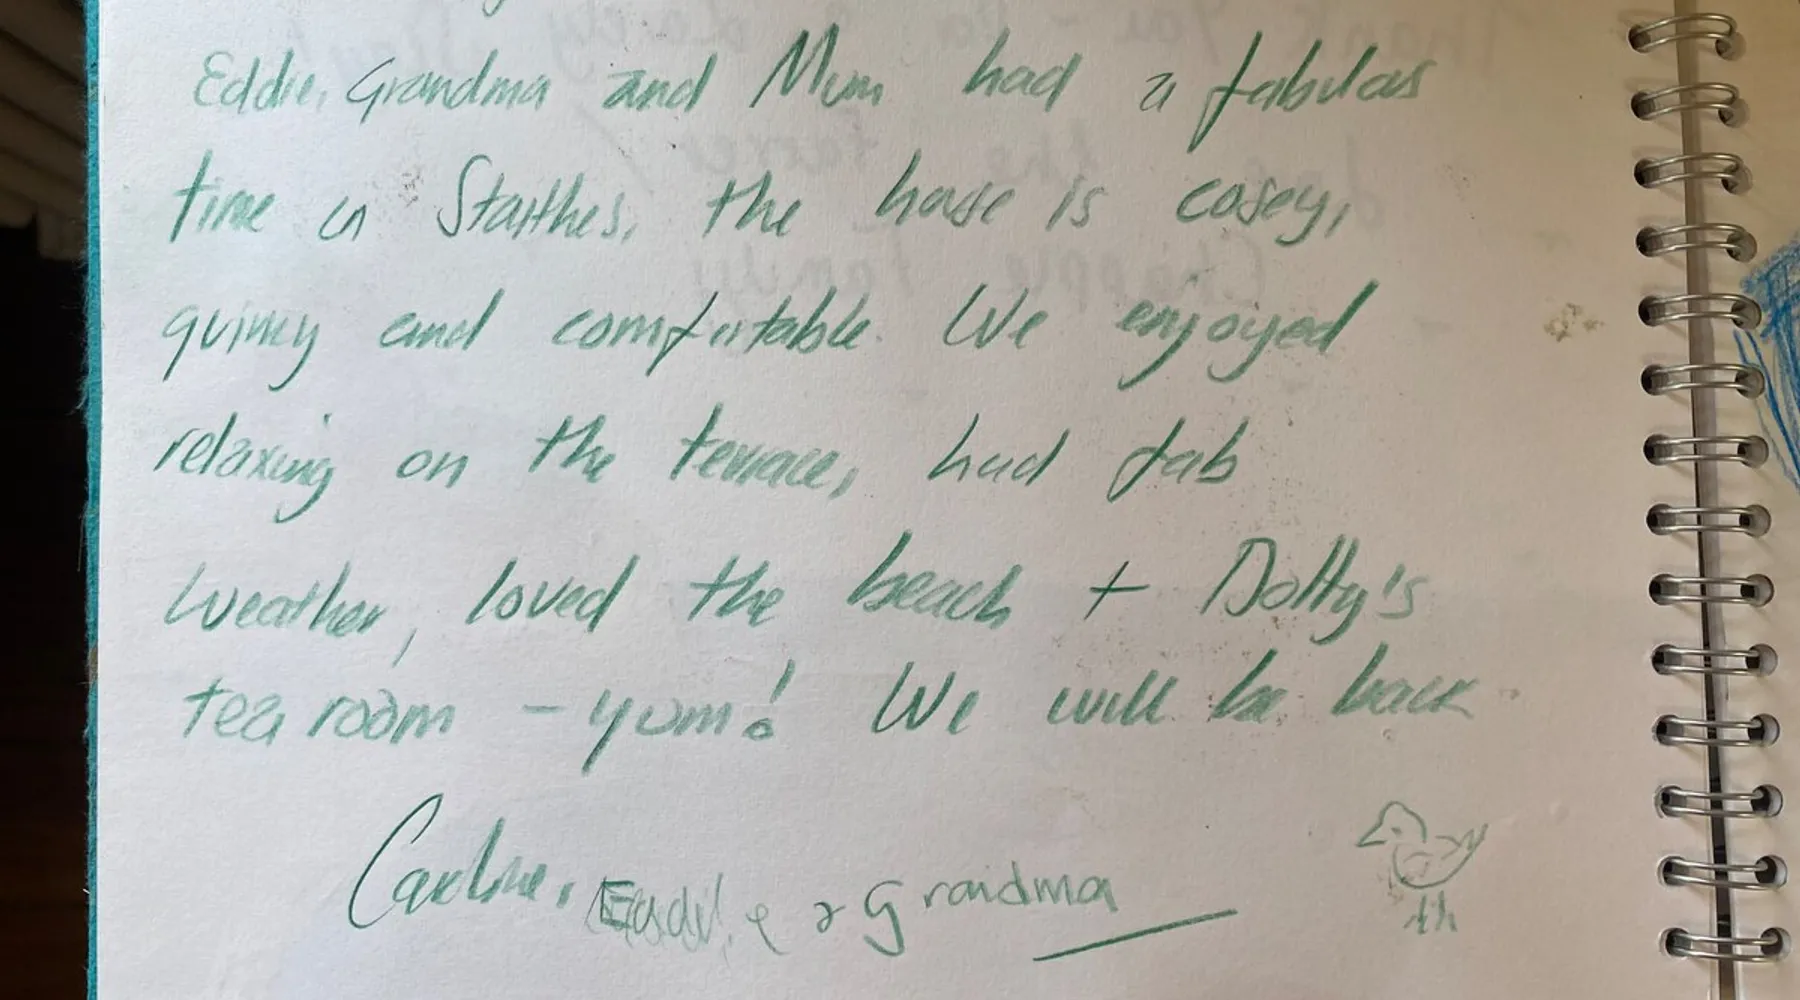 Eddie, Grandma and Mum had a fabulas
time in Staithes, the house is cosey,
quircy and comfortable. We enjoyed
relaxing on the terrace, had fab
weather, loved the beach + Dotty's
tea room - yum! We will be back
Caroline, Eddie & Grandma